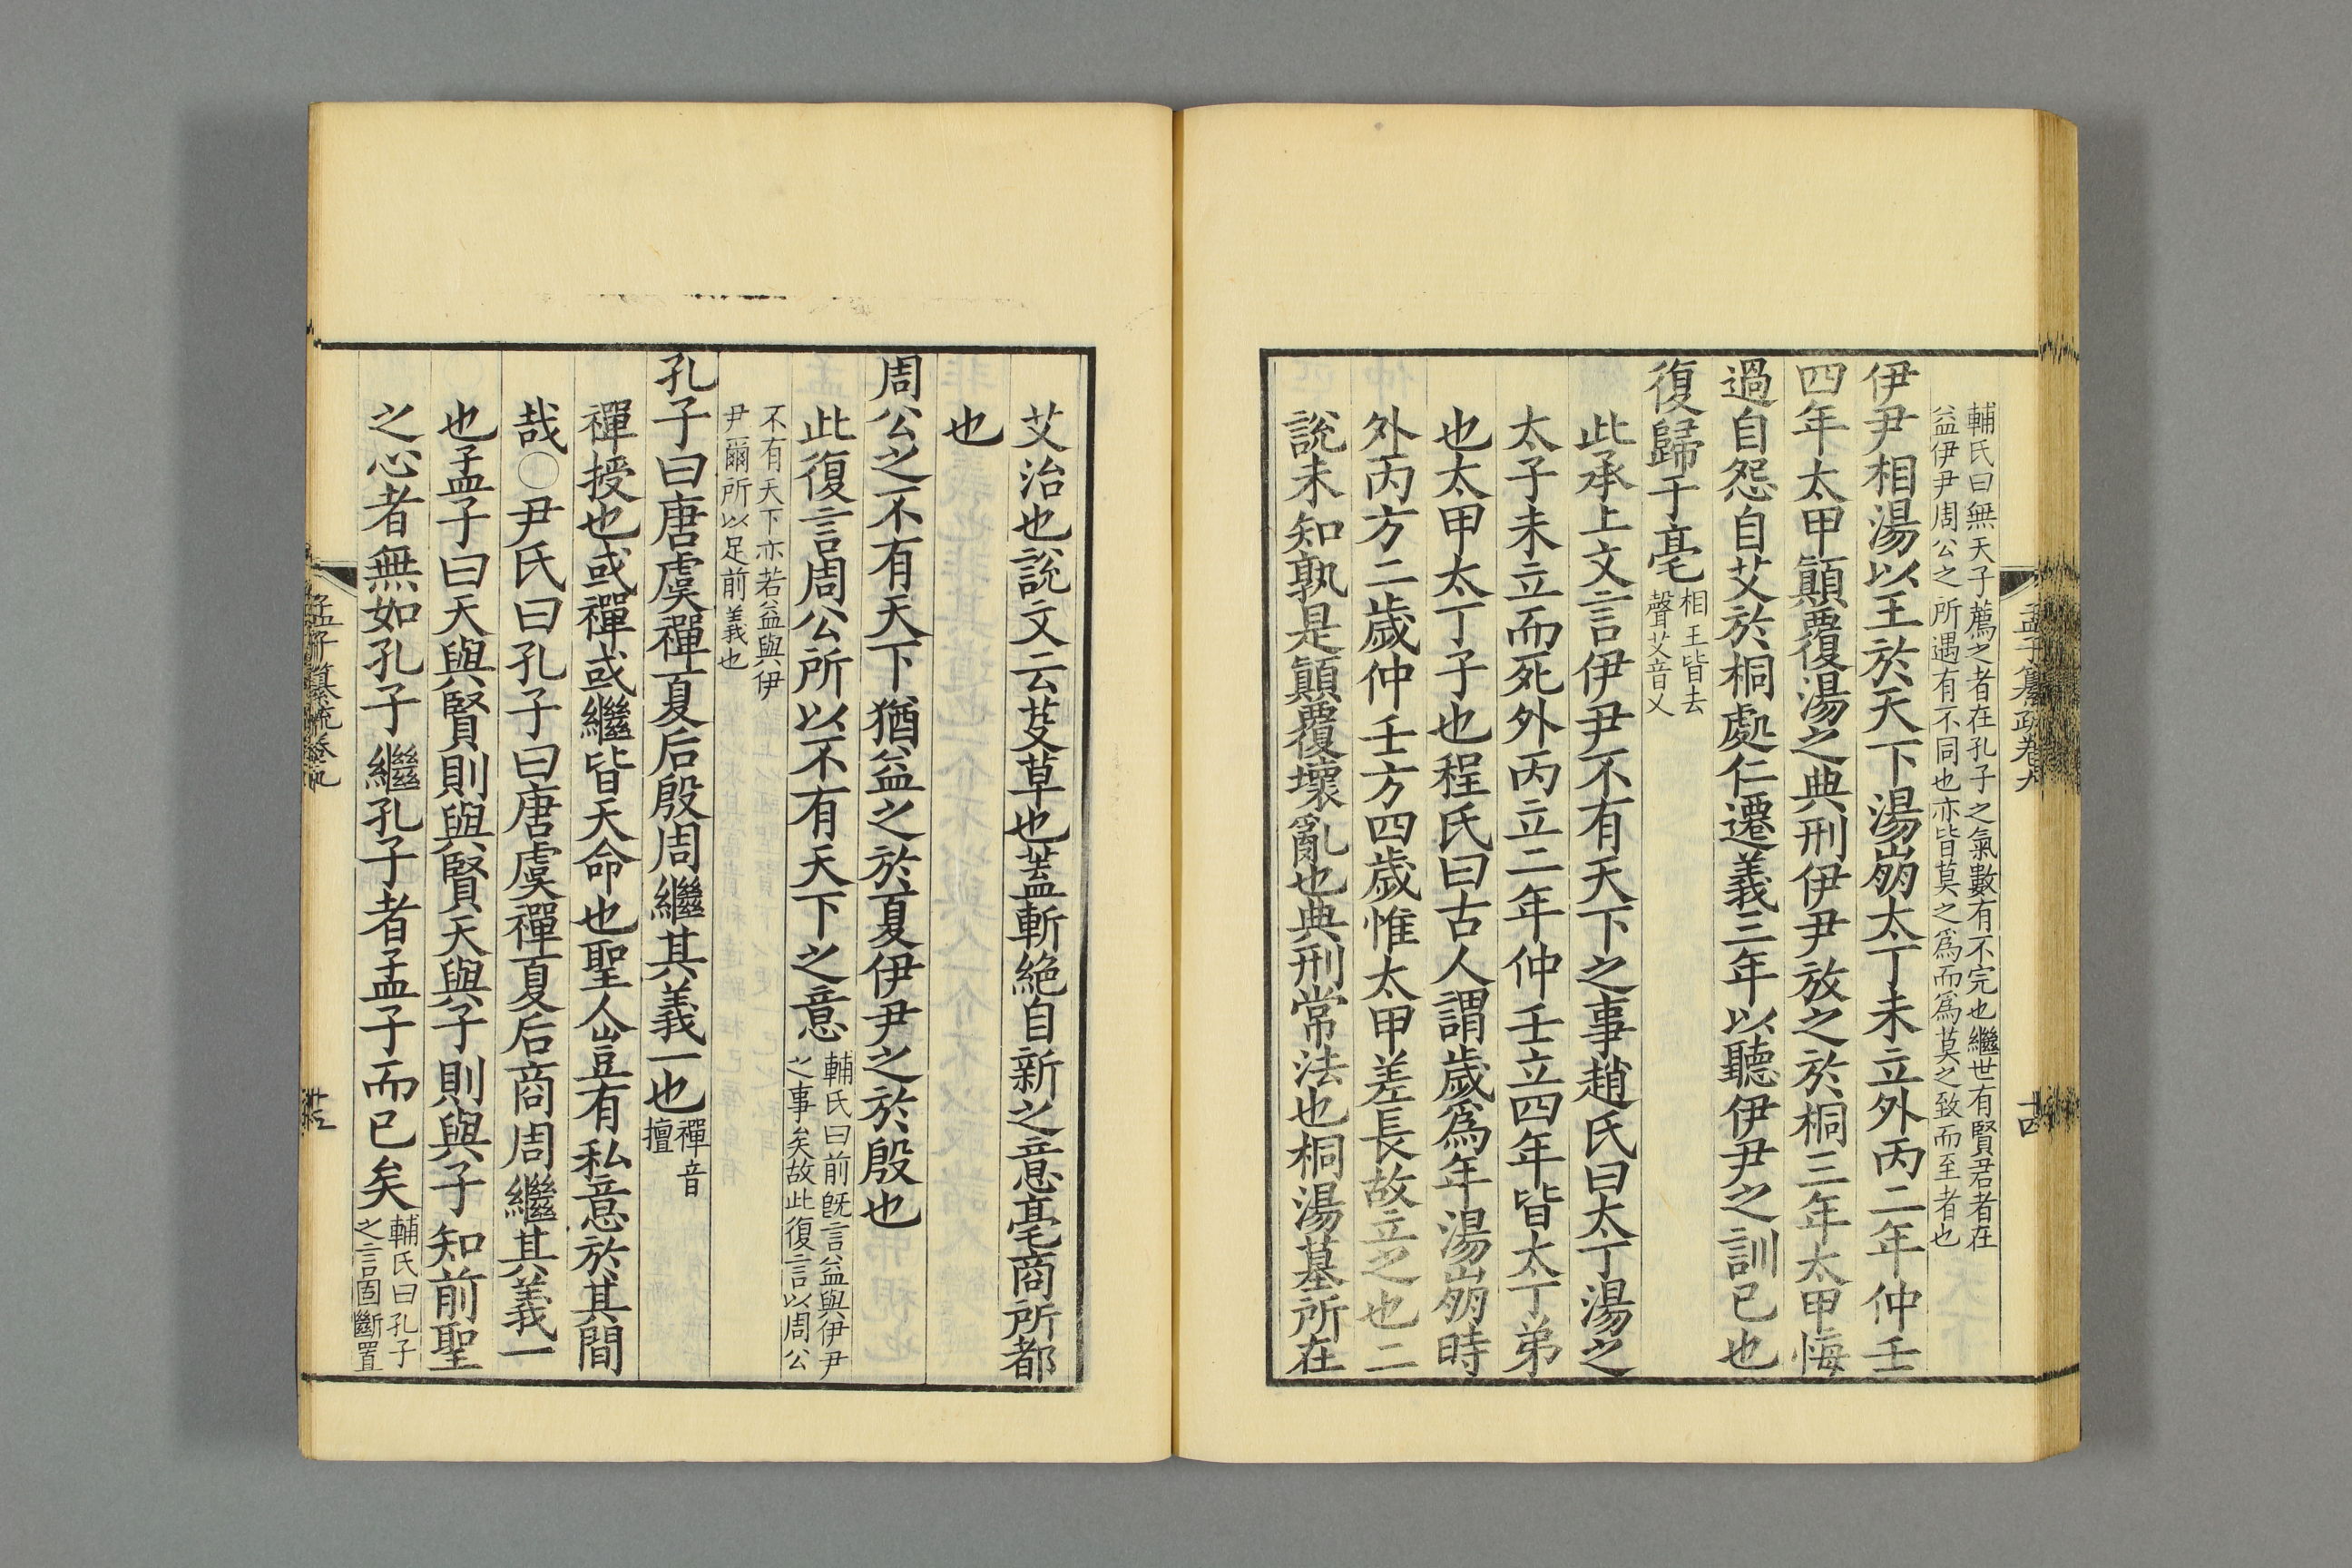 孟子纂疏卷九
十四
輔氏曰無天子薦之者在孔子之氣數有不完也繼世有賢君者在
益伊尹周公之所遇有不同也亦皆莫之爲而爲莫之致而至者也
伊尹相湯以王於天下湯崩太丁未立外丙二年仲壬
四年太甲顚覆湯之典刑伊尹放之於桐三年太甲悔
過自怨自艾於桐處仁遷義三年以聽伊尹之訓已也
復歸于亳
相王皆去
聲艾音乂
此承上文言伊尹不有天下之事趙氏曰太丁湯之
太子未立而死外丙立二年仲壬立四年皆太丁弟
也太甲太丁子也程氏曰古人謂歲爲年湯崩時
外丙方二歲仲壬方四歲惟太甲差長故立之也二
說未知孰是顚覆壞亂也典刑常法也桐湯墓所在
艾治也說文云芟草也蓋斬絕自新之意亳商所都
也
周公之不有天下猶益之於夏伊尹之於殷也
此復言周公所以不有天下之意
輔氏曰前既言益與伊尹
之事矣故此復言以周公
不有天下亦若益與伊
尹爾所以足前義也
孔子曰唐虞禪夏后殷周繼其義一也
禪音
擅
禪授也或禪或繼皆天命也聖人豈有私意於其間
哉○尹氏曰孔子曰唐虞禪夏后商周繼其義一
也孟子曰天與賢則與賢天與子則與子知前聖
之心者無如孔子繼孔子者孟子而已矣
輔氏曰孔子
之言固斷置
孟子纂疏卷九